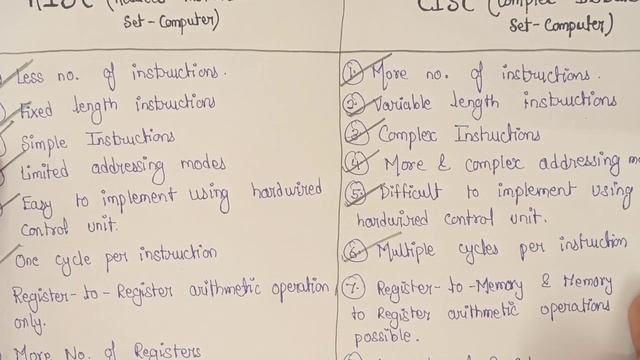 RISC
Set-Computer)
Less no. of instructions.
Fixed length instructions
Simple Instructions
Limited addressing modes
Easy to implement using hardwired
control unit.
One cycle per instruction
Register-to-Register arithmetic operation
only.
More No. of Registers
CISC (Complex
Set-Computer)
1. More no. of instructions.
2. Variable length instructions
3. Complex Instuctions
4. More & complex addressing
5. Difficult to implement using
hardwired control unit.
6. Multiple cycles per instruction
7. Register-to-Memory & Memory
to Register arithmetic operations
possible.